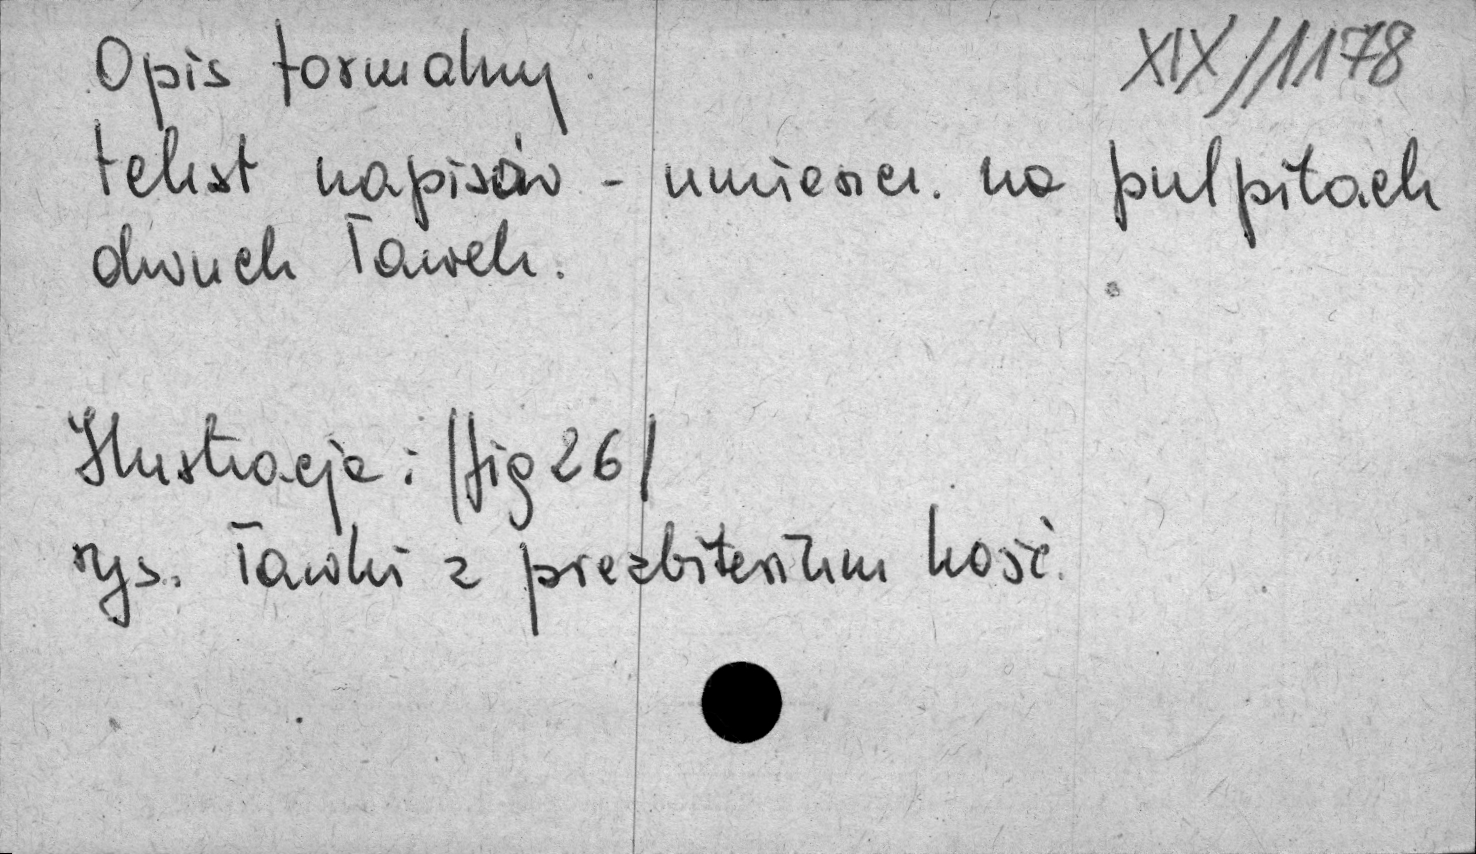 XIX/1178
Opis formalny.
tekst napisów - umieszcz. na pulpitach
dwuch ławek.
Ilustracja: /fig 26/
rys. ławki z prezbiterium kość.